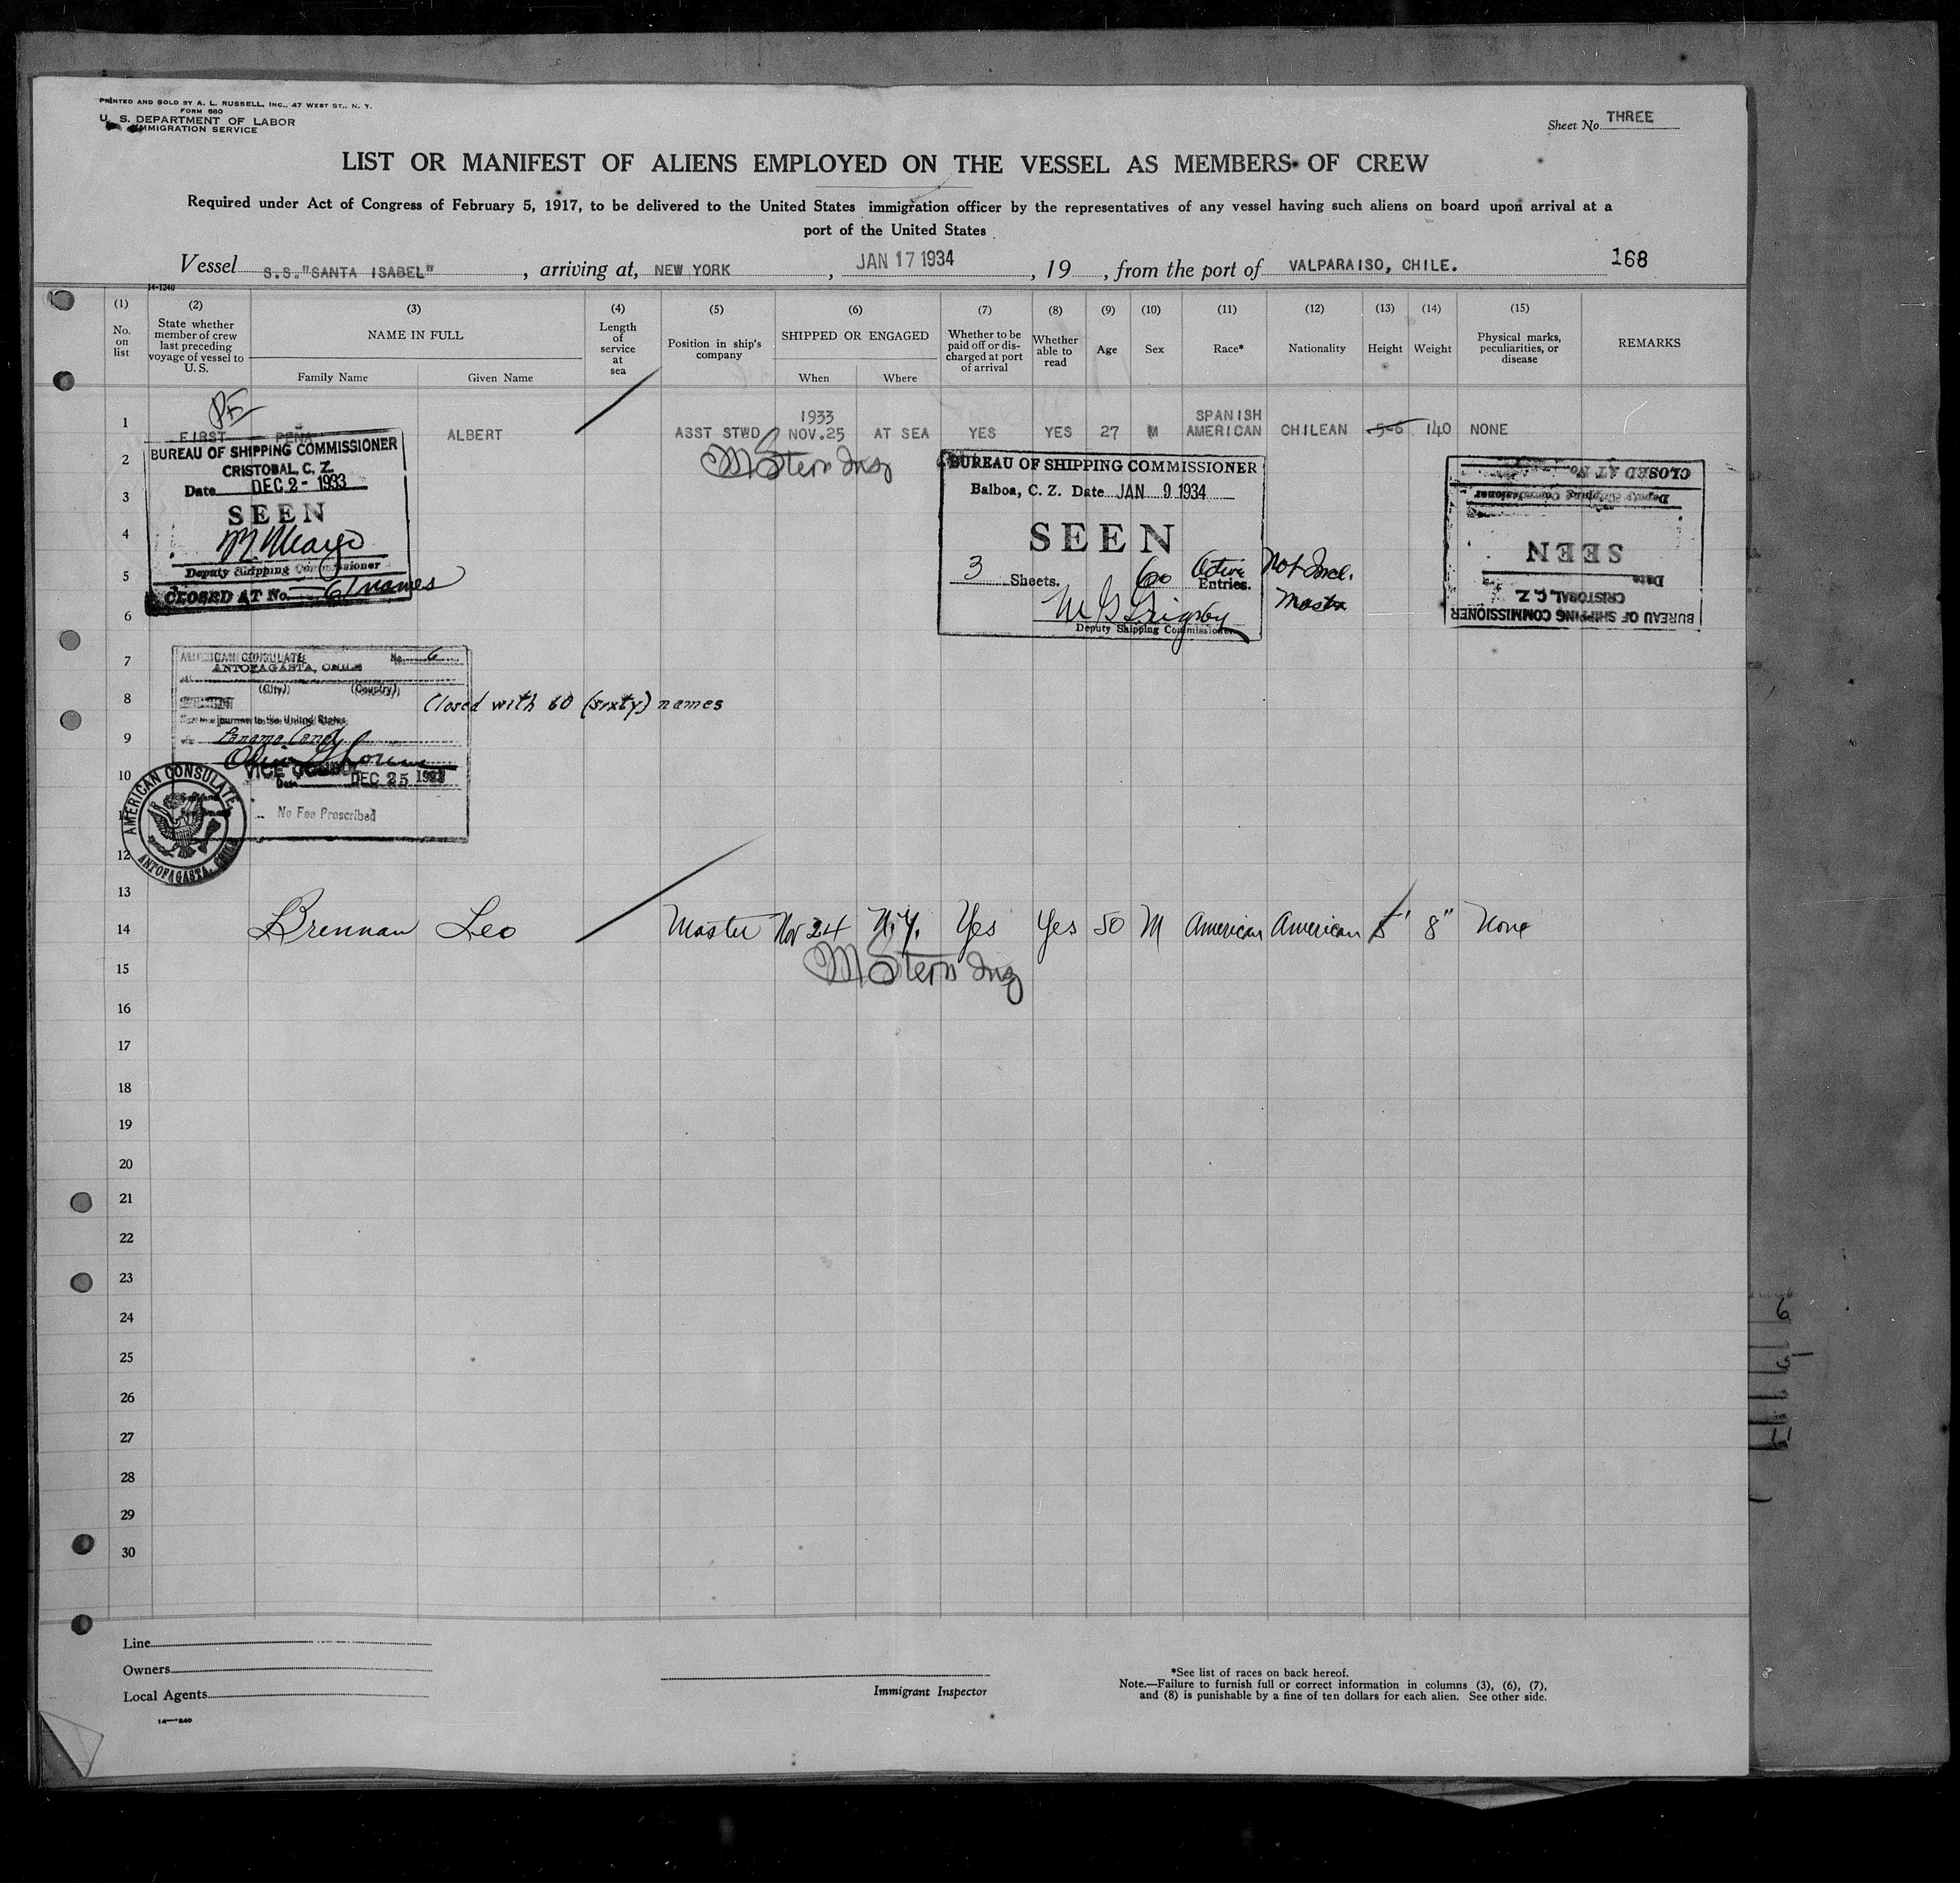 PRINTED AND SOLD BY A. L. RUSSELL, INC., 47 WEST ST., N. Y.
FORM 680
U. S. DEPARTMENT OF LABOR
IMMIGRATION SERVICE
Sheet No. THREE
LIST OR MANIFEST OF ALIENS EMPLOYED ON THE VESSEL AS MEMBERS OF CREW
Required under Act of Congress of February 5, 1917, to be delivered to the United States immigration officer by the representatives of any vessel having such aliens on board upon arrival at a
port of the United States
Vessel S.S."SANTA ISABEL", arriving at, NEW YORK, JAN 17 1934, 19, from the port of VALPARAISO, CHILE. 168
14-1240
(1) (2) (3) (4) (5) (6) (7) (8) (9) (10) (11) (12) (13) (14) (15)
No. on list
State whether member of crew last preceding voyage of vessel to U. S.
NAME IN FULL
Family Name Given Name
Length of service at sea
Position in ship's company
SHIPPED OR ENGAGED
When Where
Whether to be paid off or discharged at port of arrival
Whether able to read
Age
Sex
Race*
Nationality
Height
Weight
Physical marks, peculiarities, or disease
REMARKS
1933
SPANISH
1 FIRST PEÑA ALBERT ASST STWD NOV.25 AT SEA YES YES 27 M AMERICAN CHILEAN 5-6 140 NONE
M Stern Insp
BUREAU OF SHIPPING COMMISSIONER
CRISTOBAL, C. Z.
Date DEC 2 - 1933
SEEN
Deputy Shipping Commissioner
CLOSED AT No. 61 names
BUREAU OF SHIPPING COMMISSIONER
Balboa, C. Z. Date JAN 9 1934
SEEN
3 Sheets. 60 Active Entries. Not Incl.
Master
W G Grigsby
Deputy Shipping Commissioner
BUREAU OF SHIPPING COMMISSIONER
CRISTOBAL, C. Z.
Date
SEEN
Deputy Shipping Commissioner
CLOSED AT No.
2
3
4
5
6
7
8
9
10
11
12
13
AMERICAN CONSULATE No. 6
ANTOFAGASTA, CHILE
(City) (Country)
Closed with 60 (sixty) names
journey to the United States
Panama Canal
VICE CONSUL
Date DEC 25 1933
No Fee Prescribed
AMERICAN CONSULATE,
ANTOFAGASTA, CHILE
14 Brennan Leo Master Nov 24 N.Y. Yes Yes 50 M American American 5' 8" None
M Stern Insp
15
16
17
18
19
20
21
22
23
24
25
26
27
28
29
30
Line
Owners
Local Agents
Immigrant Inspector
*See list of races on back hereof.
Note.—Failure to furnish full or correct information in columns (3), (6), (7),
and (8) is punishable by a fine of ten dollars for each alien. See other side.